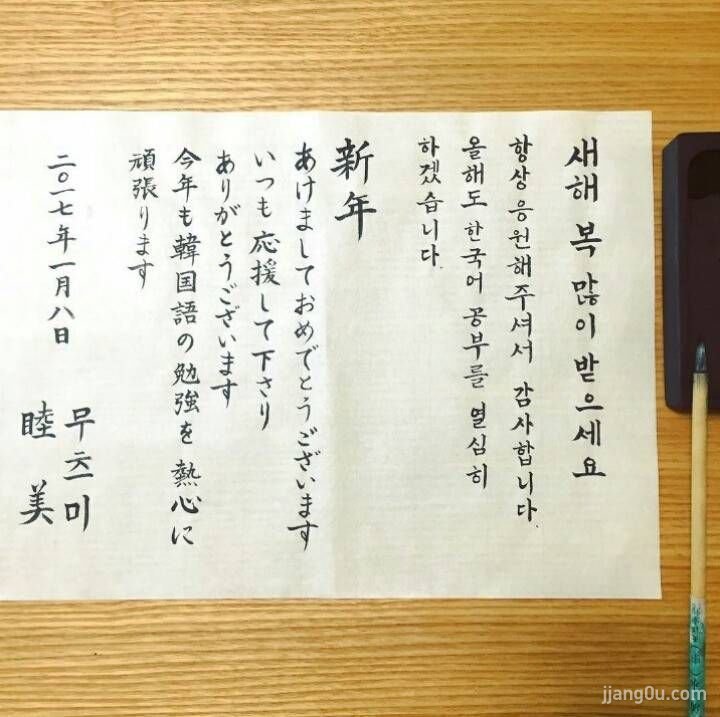 새해 복 많이 받으세요
항상 응원해주셔서 감사합니다.
올해도 한국어 공부를 열심히
하겠습니다.
新年
あけましておめでとうございます
いつも応援して下さり
ありがとうございます
今年も韓国語の勉強を熱心に
頑張ります
二〇一七年一月八日
무츠미
睦美
jjang0u.com